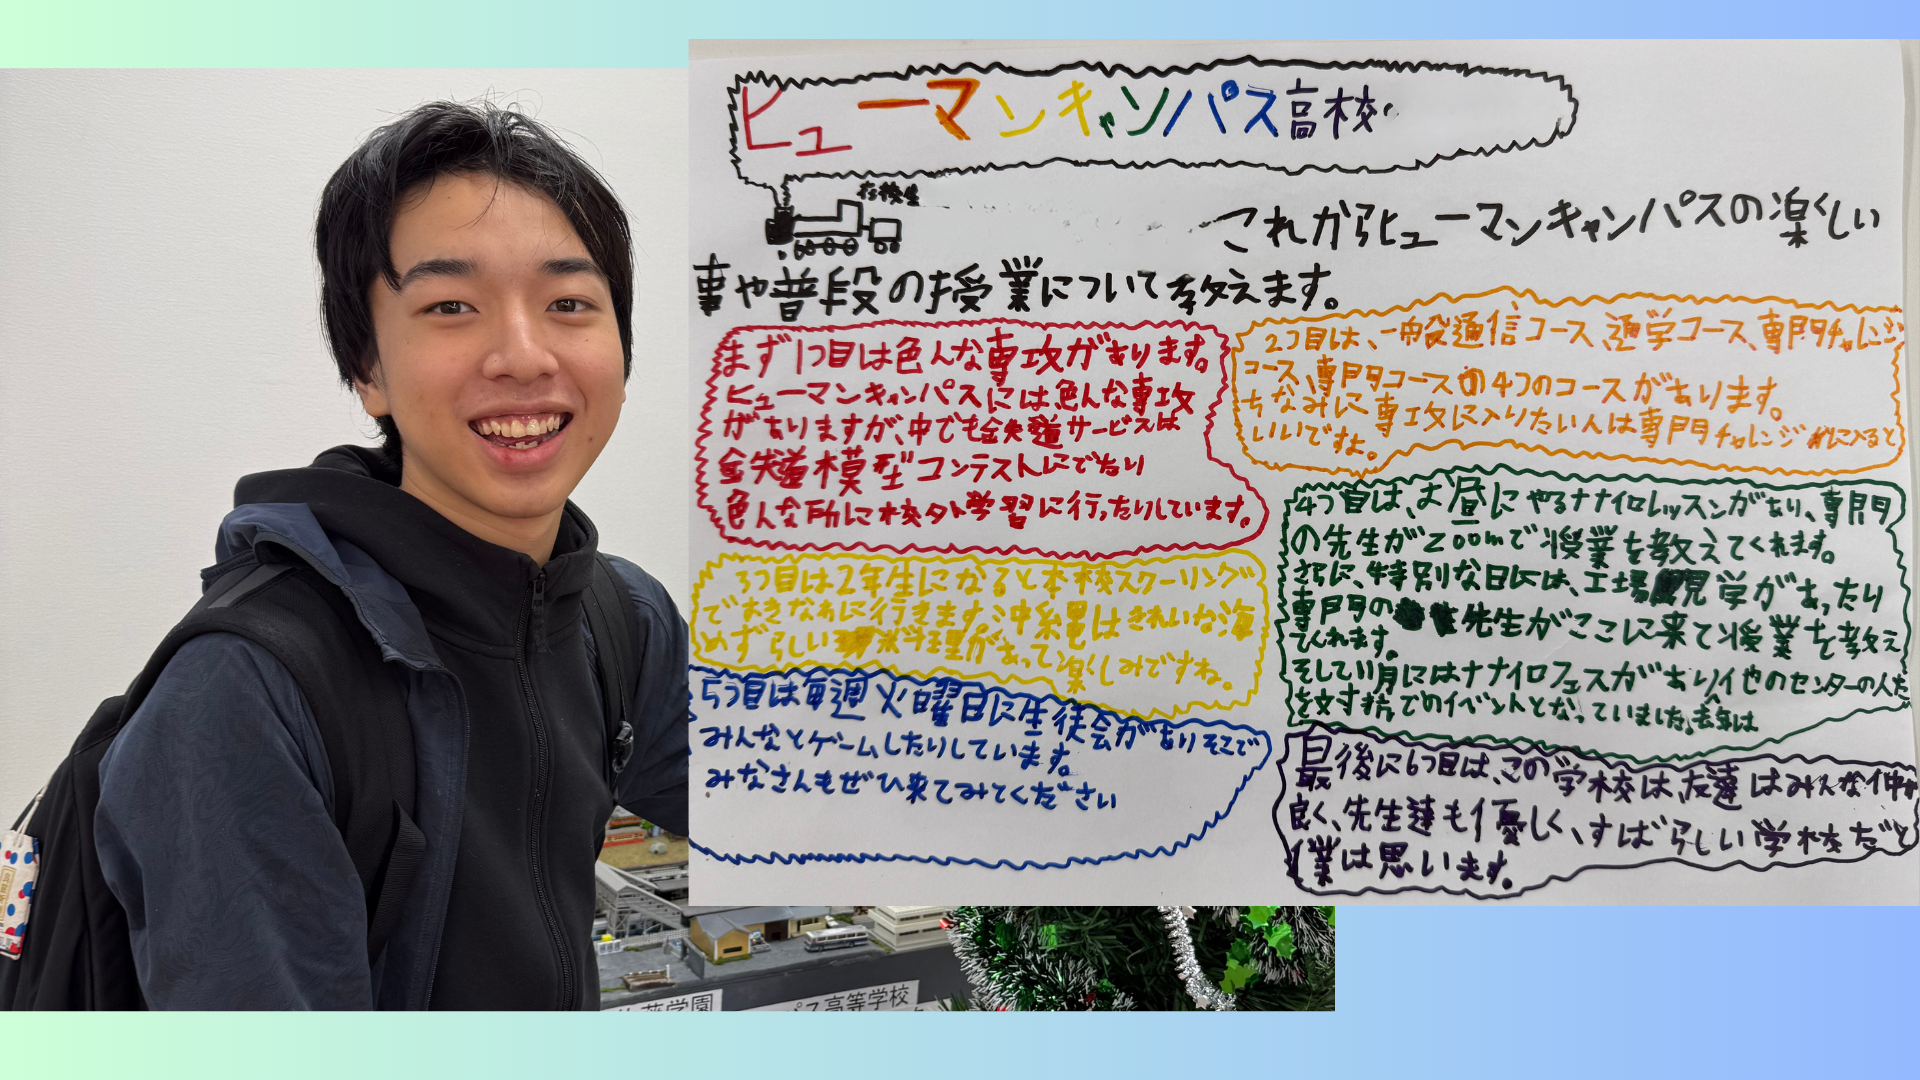 ヒューマンキャンパス高校
在校生
これからヒューマンキャンパスの楽しい
事や普段の授業について教えます。
まず1つ目は色んな専攻があります。
ヒューマンキャンパスには色んな専攻
がありますが、中でも鉄道サービスは
鉄道模型コンテストにでたり
色んな所に校外学習に行ったりしています。
2つ目は、一般通信コース、通学コース、専門チャレンジ
コース、専門コースの4つのコースがあります。
ちなみに専攻に入りたい人は専門チャレンジに入ると
いいですよ。
3つ目は2年生になると本校スクーリング
でおきなわに行きます。沖縄はきれいな海
めずらしい料理があって楽しみですね。
4つ目は、お昼にやるナナイロレッスンがあり、専門
の先生がZoomで授業を教えてくれます。
さらに、特別な日には、工場見学があったり
専門の先生がここに来て授業を教え
てくれます。
そして11月にはナナイロフェスがあり他のセンターの人た
を対抗でのイベントとなっていました。去年は
5つ目は毎週火曜日に生徒会がありそこで
みんなとゲームしたりしています。
みなさんもぜひ来てみてください
最後に6つ目は、この学校は、友達はみんな仲が
良く、先生達も優しく、すばらしい学校だと
僕は思います。
学園
パス高等学校